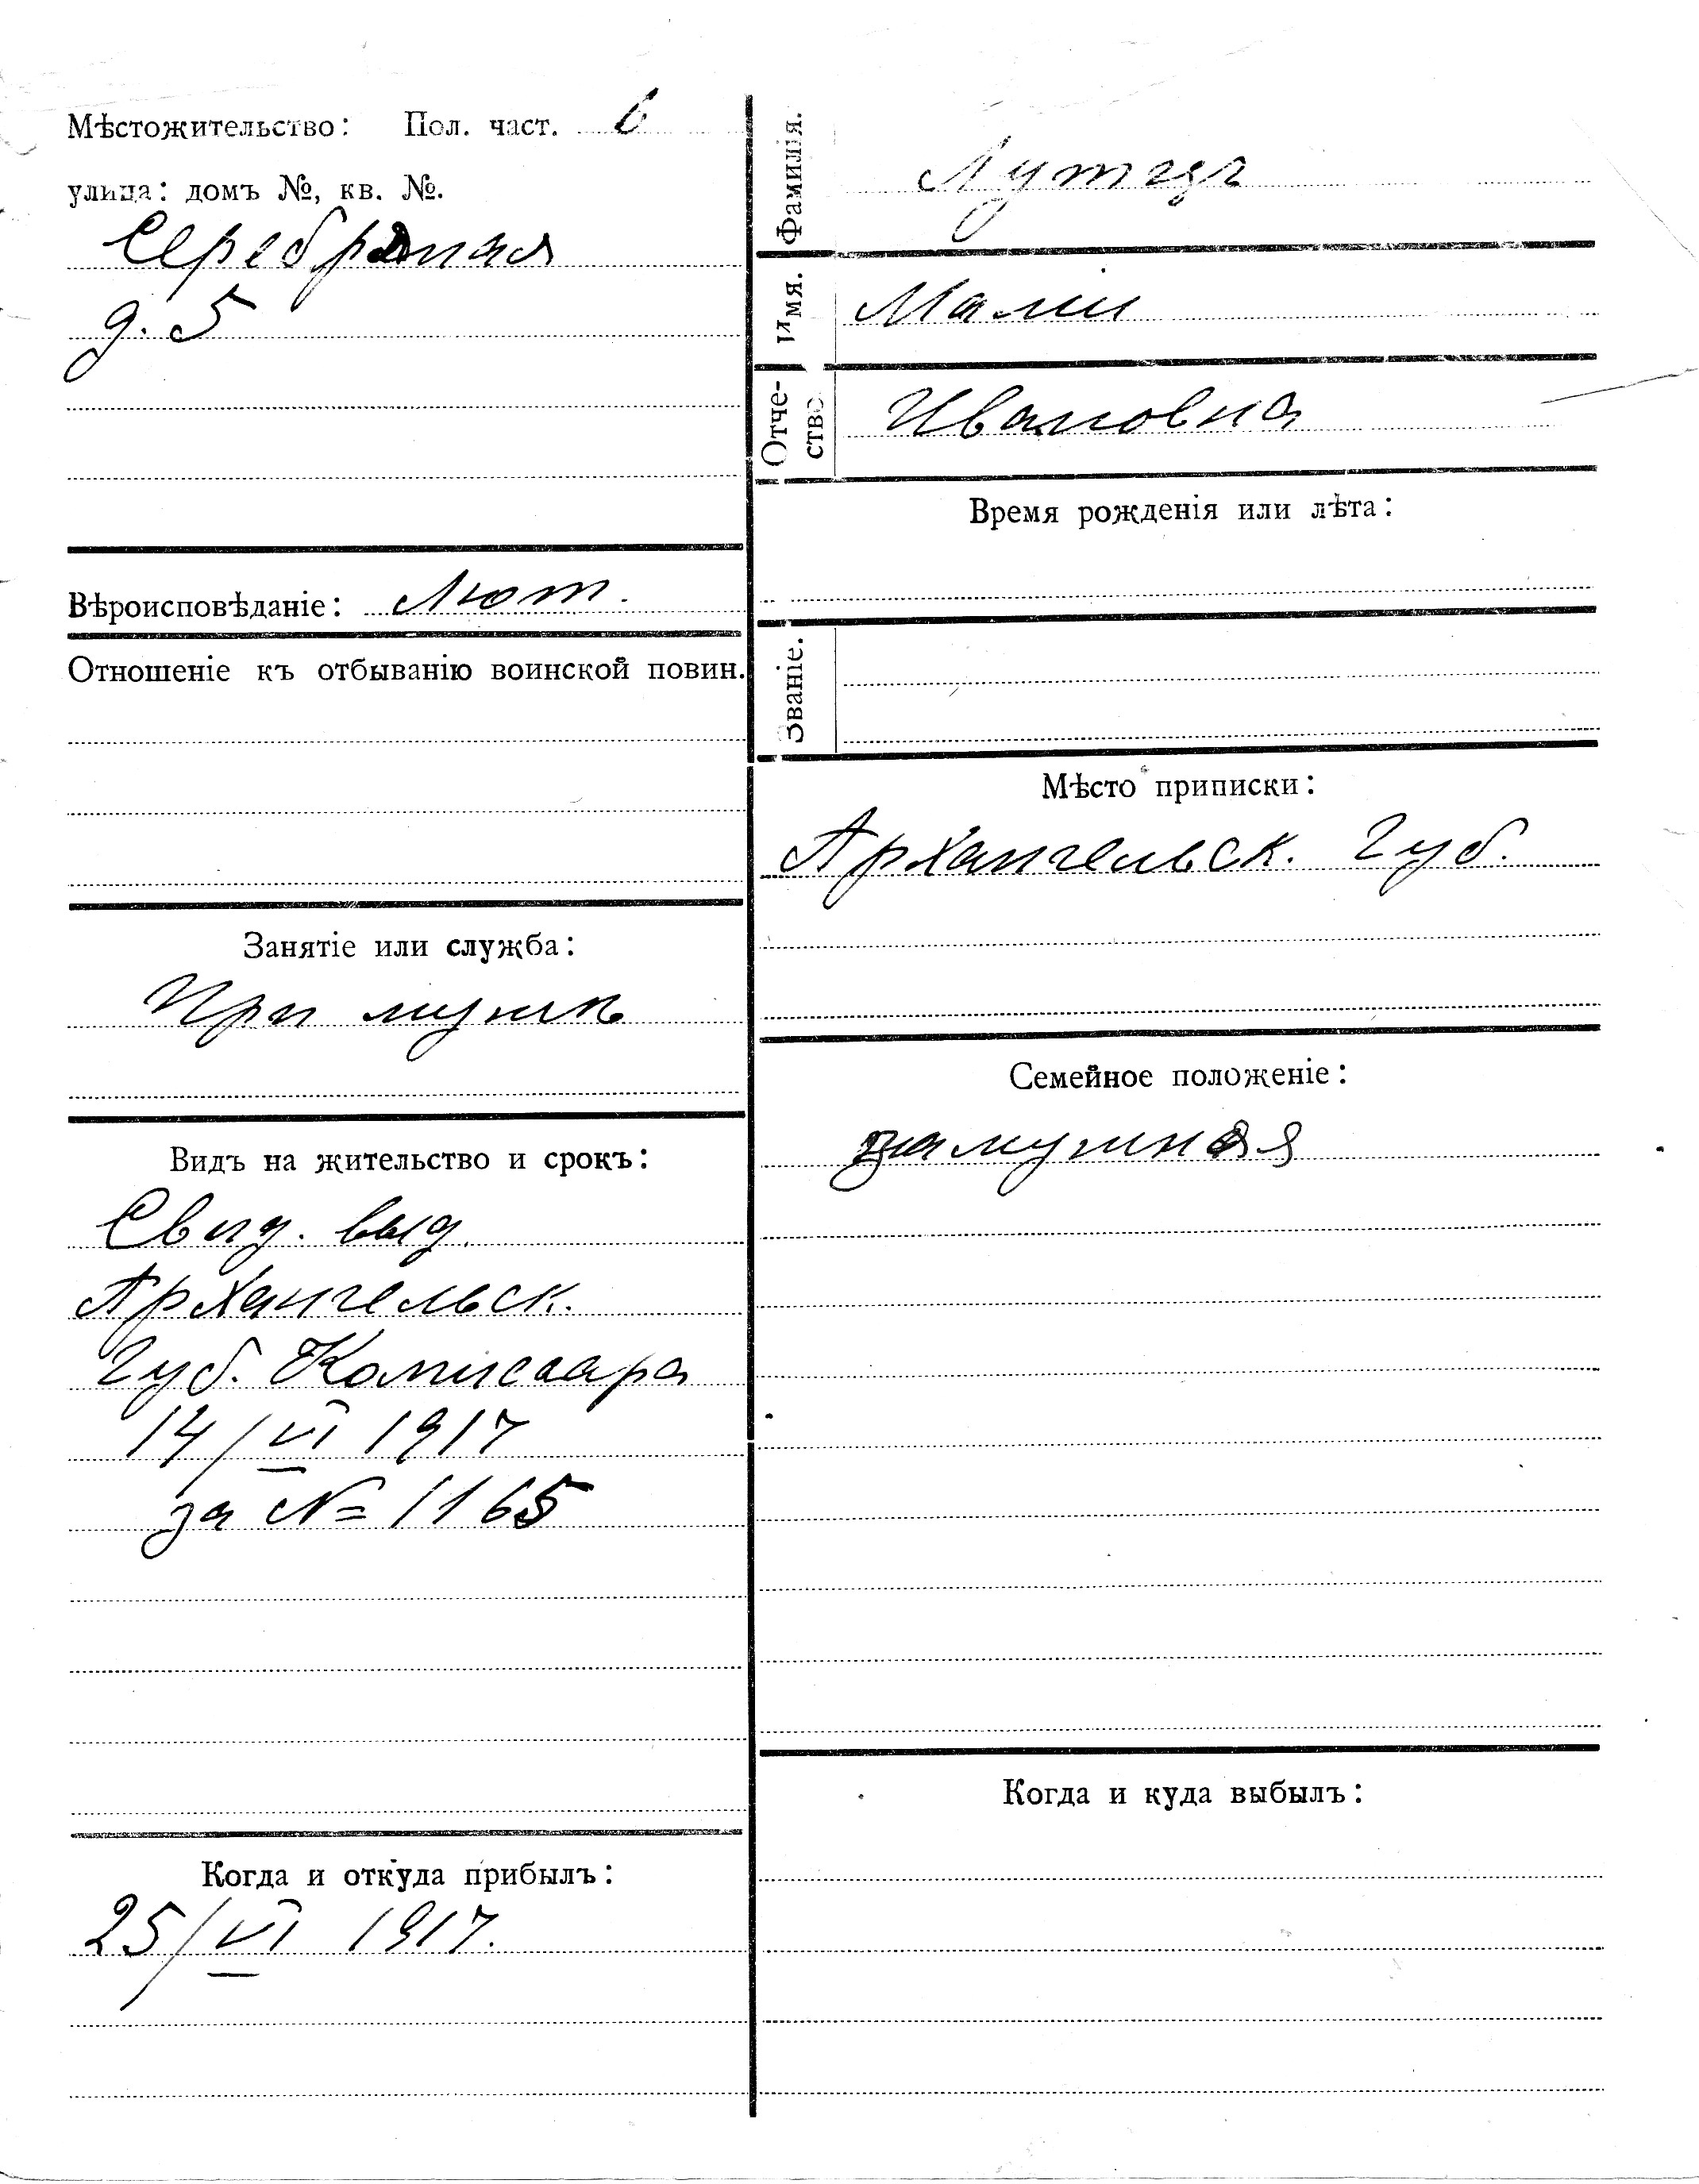 Мѣстожительство: Пол. част. 6
улица: домъ №, кв. №.
Серебряная
д. 5
Вѣроисповѣданіе: Лют.
Отношеніе къ отбыванію воинской повин.
Занятіе или служба:
При мужѣ
Видъ на жительство и срокъ:
Свид. выд.
Архангельск.
Губ. Комиссара
14/VI 1917
за № 1165
Когда и откуда прибылъ:
25/VI 1917.
Фамилія. Лутцъ
Имя. Мали
Отчество. Ивановна
Время рожденія или лѣта:
Званіе.
Мѣсто приписки:
Архангельск. Губ.
Семейное положеніе:
замужняя
Когда и куда выбылъ: